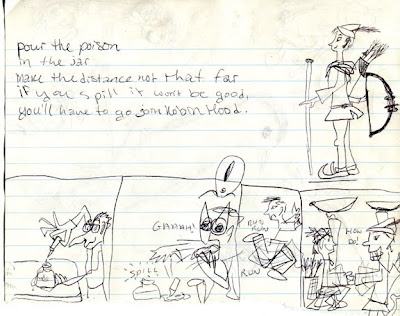 pour the poison
in the jar
make the distance not that far
if you spill it won't be good,
you'll have to go join Robin Hood.
!
GAAAH!
RUN
RUN
RUN
Spill
HOW
DO!